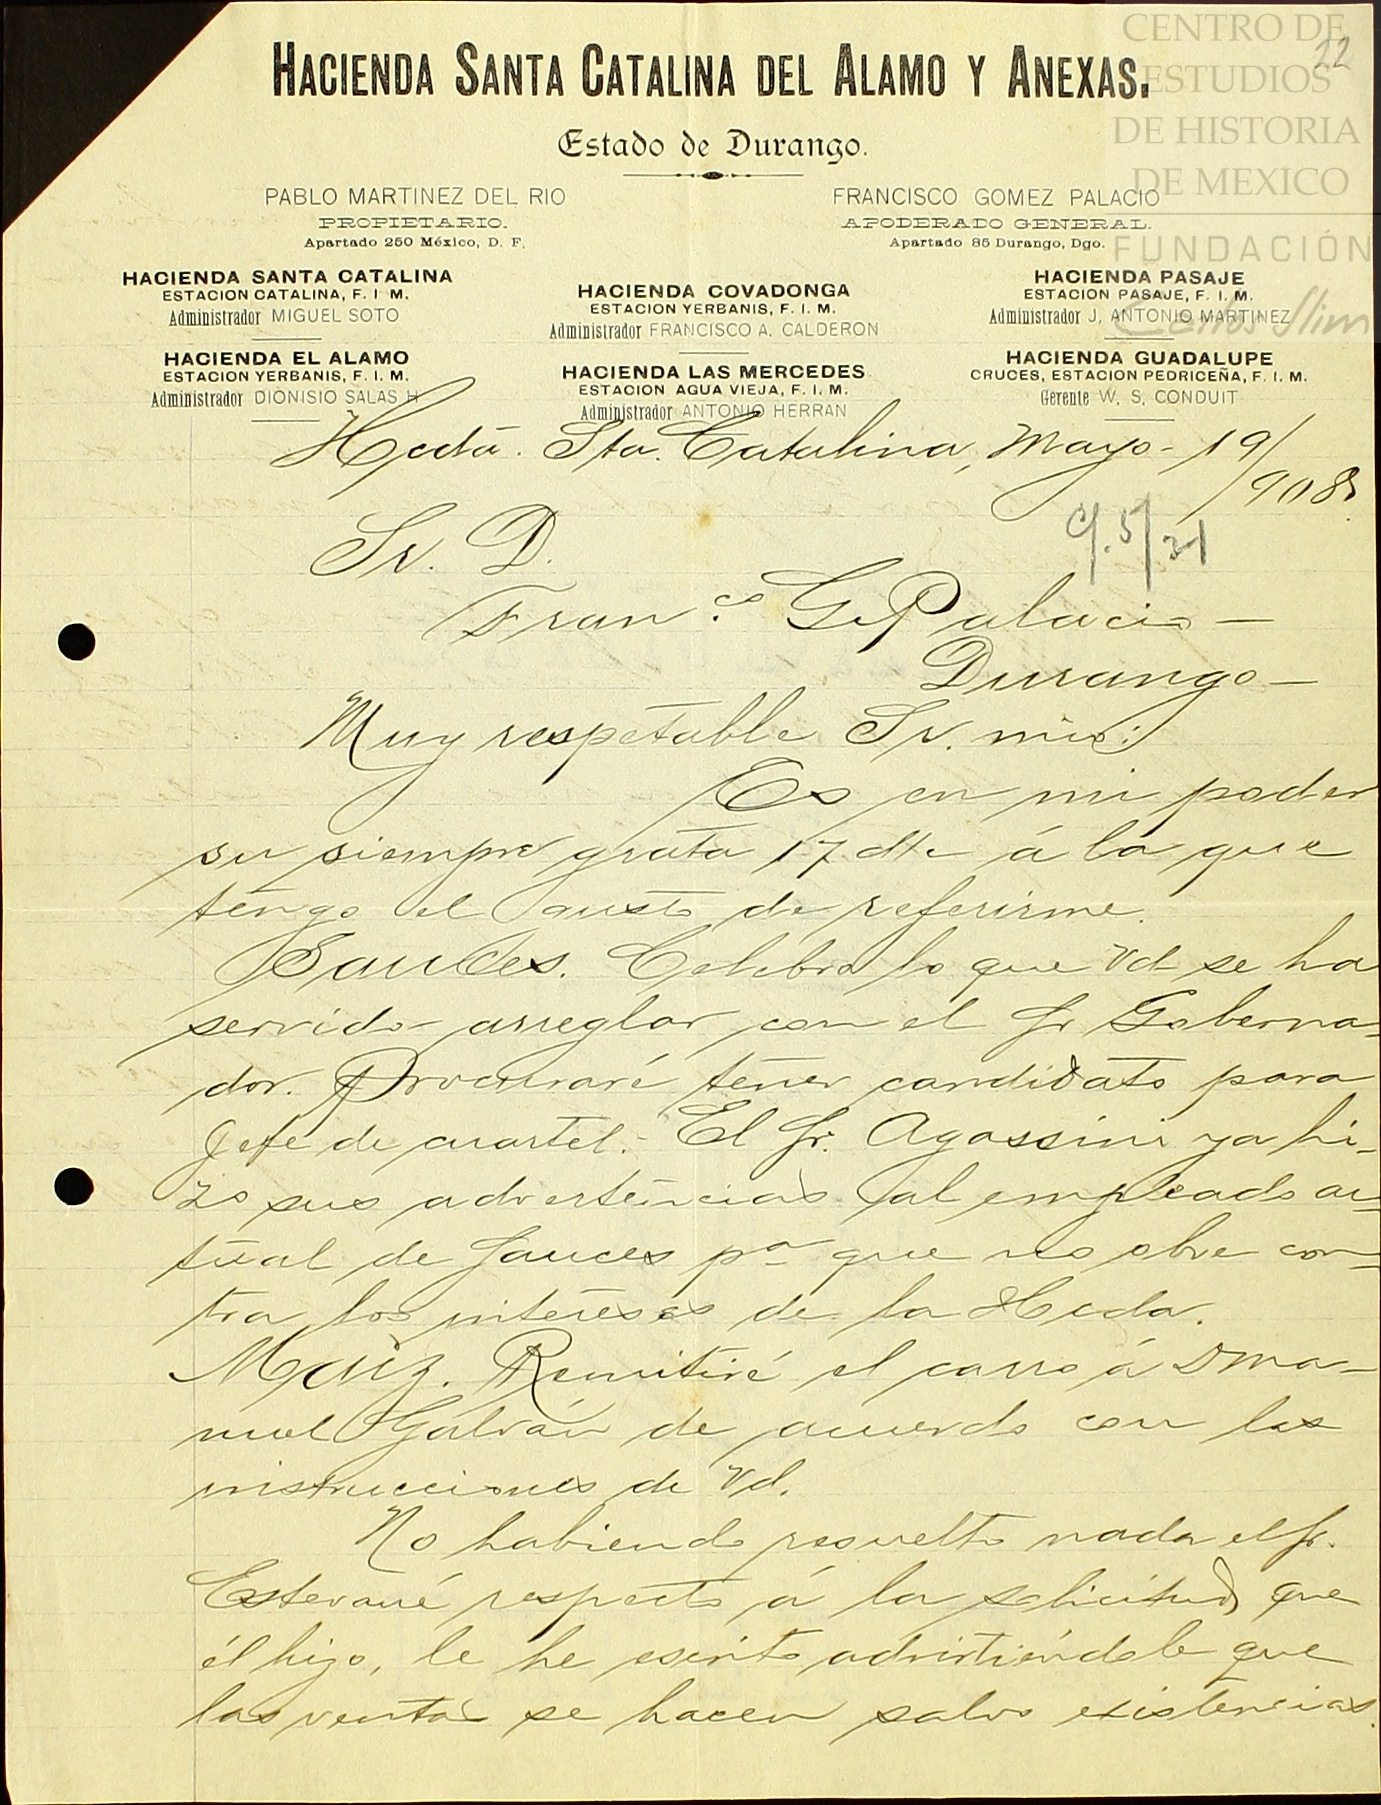 CENTRO DE
ESTUDIOS
DE HISTORIA
DE MEXICO
FUNDACIÓN
Carlos Slim
22
HACIENDA SANTA CATALINA DEL ALAMO Y ANEXAS.
Estado de Durango.
PABLO MARTINEZ DEL RIO
PROPIETARIO.
Apartado 250 México, D. F.
FRANCISCO GOMEZ PALACIO
APODERADO GENERAL.
Apartado 85 Durango, Dgo.
HACIENDA SANTA CATALINA
ESTACION CATALINA, F. I M.
Administrador MIGUEL SOTO
HACIENDA EL ALAMO
ESTACION YERBANIS, F. I. M.
Administrador DIONISIO SALAS H
HACIENDA COVADONGA
ESTACION YERBANIS, F. I. M.
Administrador FRANCISCO A. CALDERON
HACIENDA LAS MERCEDES
ESTACION AGUA VIEJA, F. I. M.
Administrador ANTONIO HERRAN
HACIENDA PASAJE
ESTACION PASAJE, F. I. M.
Administrador J, ANTONIO MARTINEZ
HACIENDA GUADALUPE
CRUCES, ESTACION PEDRICEÑA, F. I. M.
Gerente W. S. CONDUIT
Hcda. Sta. Catalina, Mayo - 19/908.
C/. 5/21
Sr. D.
Franco. G. Palacio -
Durango -
Muy respetable Sr. mio:
Es en mi poder
su siempre grata 17 dte á la que
tengo el gusto de referirme.
Sauces. Celebro lo que Vd se ha
servido arreglar con el Sr Goberna-
dor. Procuraré tener candidato para
Jefe de cuartel. - El Sr. Agossini ya hi-
zo sus advertencias al empleado ac-
tual de Sauces pa que no obre con-
tra los intereses de la Hcda.
Maiz. Remitiré el carro á D Ma-
nuel Galván de acuerdo con las
instrucciones de Vd.
No habiendo resuelto nada el Sr.
Estevané respecto á la solicitud que
él hizo, le he escrito advirtiéndole que
las ventas se hacen salvo existencias.